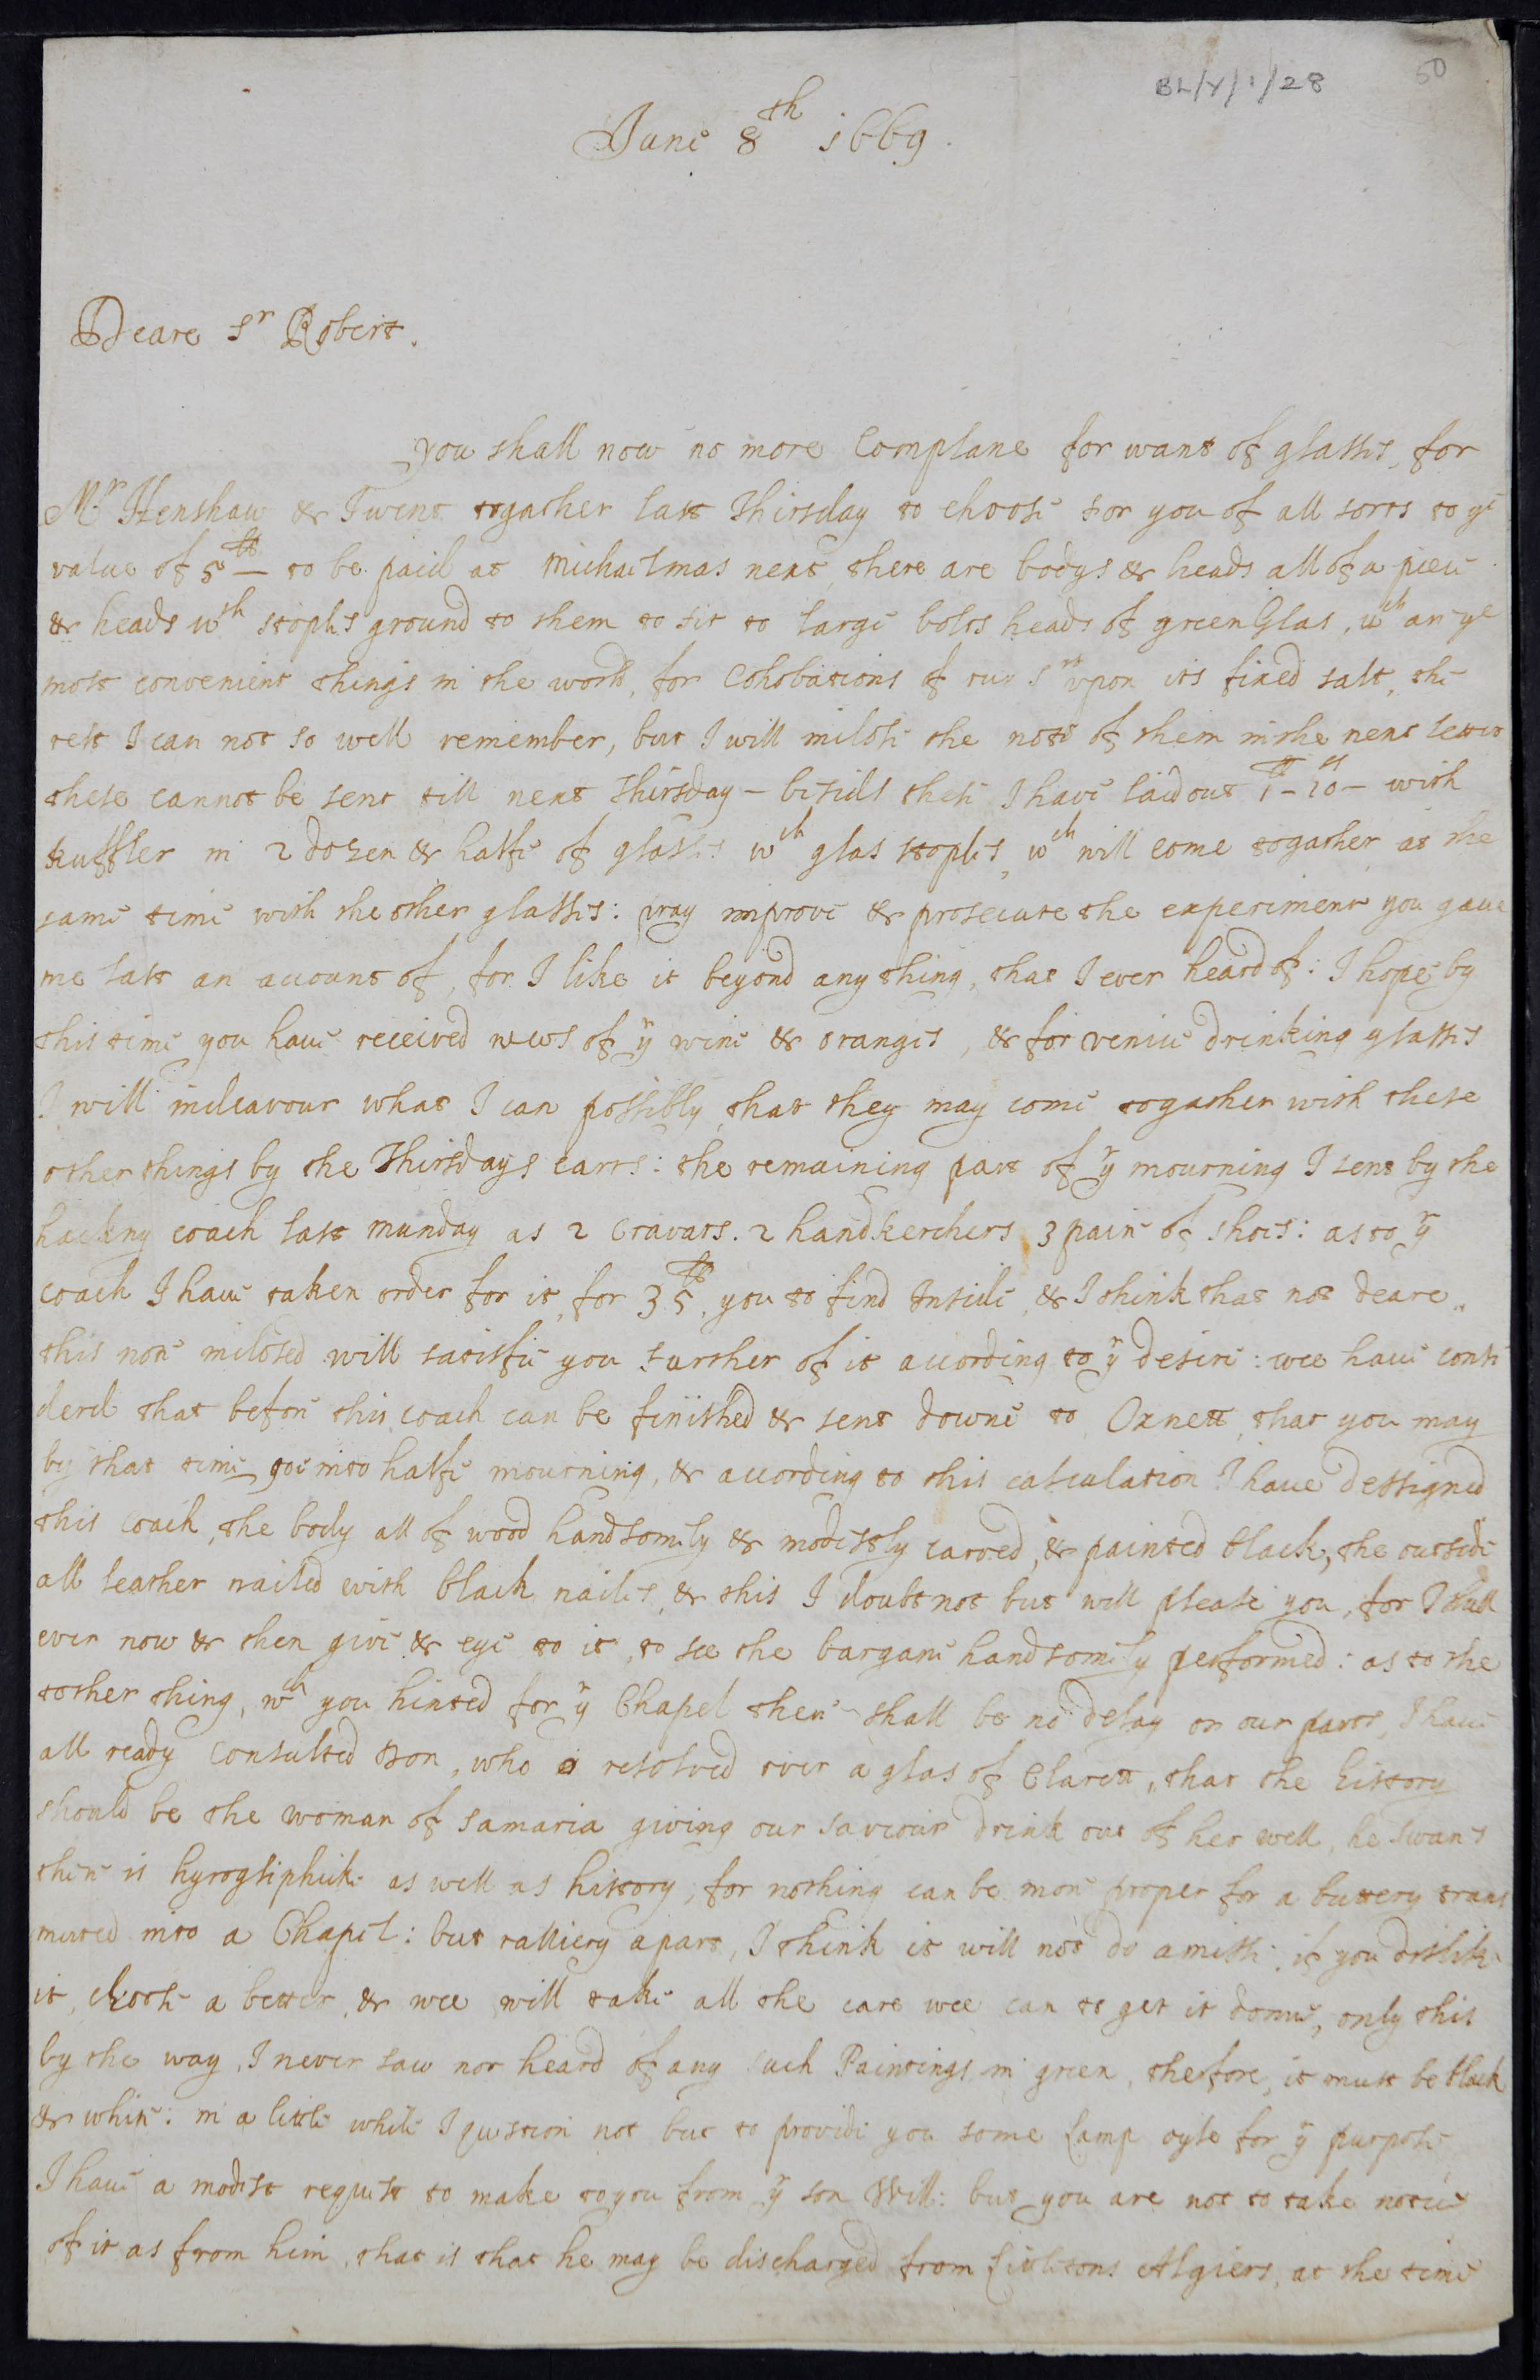 BL/Y/1/28
50
June 8th 1669.
Deare Sr Robert.
you shall now no more Complane for want of glasses, for
Mr Henshaw & I went togather last Thirsday to choose for you of all sorts to ye
value of 5ll — to be paid at Michaelmas next, there are bodys & heads all of a piece
& heads wth stoples ground to them to fit to large bolts heads of green Glas, wch are ye
most convenient things in the world, for Cohobations of upon its fixed salt, the
rest I can not so well remember, but I will inclose the note of them in the next letter
these cannot be sent till next Thirsday – besides these I have laid out 1ll – 10s – with
Kuffler in 2 dozen & halfe of glasses wth glas stoples, wch will come togather at the
same time with the other glasses: pray improve & prosecute the experiment you gave
me last an account of, for I like it beyond any thing, that I ever heard of: I hope by
this time you have received news of yr wine & oranges, & for venice drinking glasses
I will indeavour what I can possibly, that they may come togather with these
other things by the Thirsdays carrs: the remaining part of yr mourning I sent by the
hackny coach last munday as 2 Cravats. 2 handkerchers 3 paire of shoes: as to yr
coach I have taken order for it, for 35ll, you to find Inside, & I think that not deare.
this note inclosed will satisfie you further of it according to yr desire: wee have consi
derd that before this coach can be finished & sent downe to Oxnett, that you may
by that time goe into halfe mourning, & according to this calculation I have dessigned
this coach, the body all of wood handsomly & modestly carved, & painted black, the outside
all leather nailed with black nailes, & this I doubt not but will please you, for I shall
ever now & then give & eye to it, to see the bargane handsomely performed: as to the
tother thing, wch you hinted for yr Chapel there shall be no delay on our parts, I have
all ready consulted, who is resolved over a glas of Clarett, that the history
should be the woman of Samaria giving our saviour drink out of her well, he swears
there is hyrogliphick as well as history, for nothing can be more proper for a buttery trans
muted into a Chapel: but ralliery apart, I think it will not do amisse, if you dislike
it, choose a better, & wee will take all the care wee can to get it donne, only this
by the way, I never saw nor heard of any such Paintings in green, therfore, it must be black
& white: in a little while I question not but to provide you some Lamp oyle for yr purpose
I have a modest request to make to you from yr son Will: but you are not to take notice
of it as from him, that is that he may be discharged from Algiers, at the time